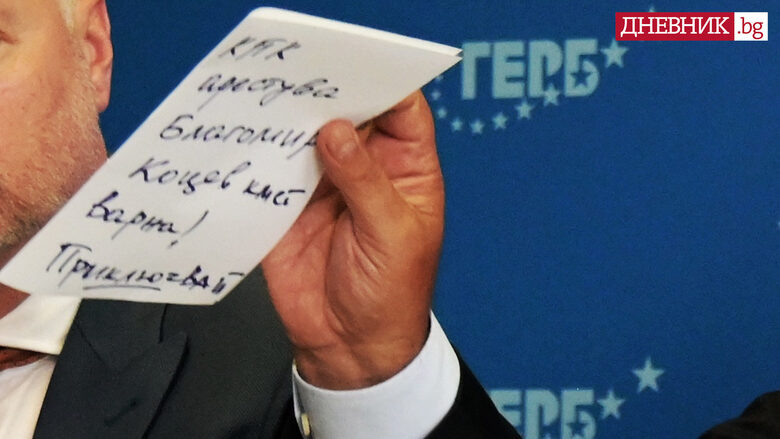 ДНЕВНИК.bg
ГЕРБ
КПК
арестува
Благомир
Коцев кмет
Варна!
Приключвай
ГЕРБ